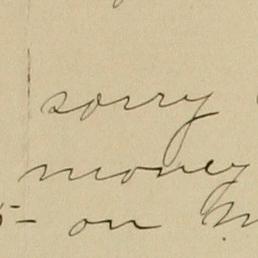 sorry
money
5- on